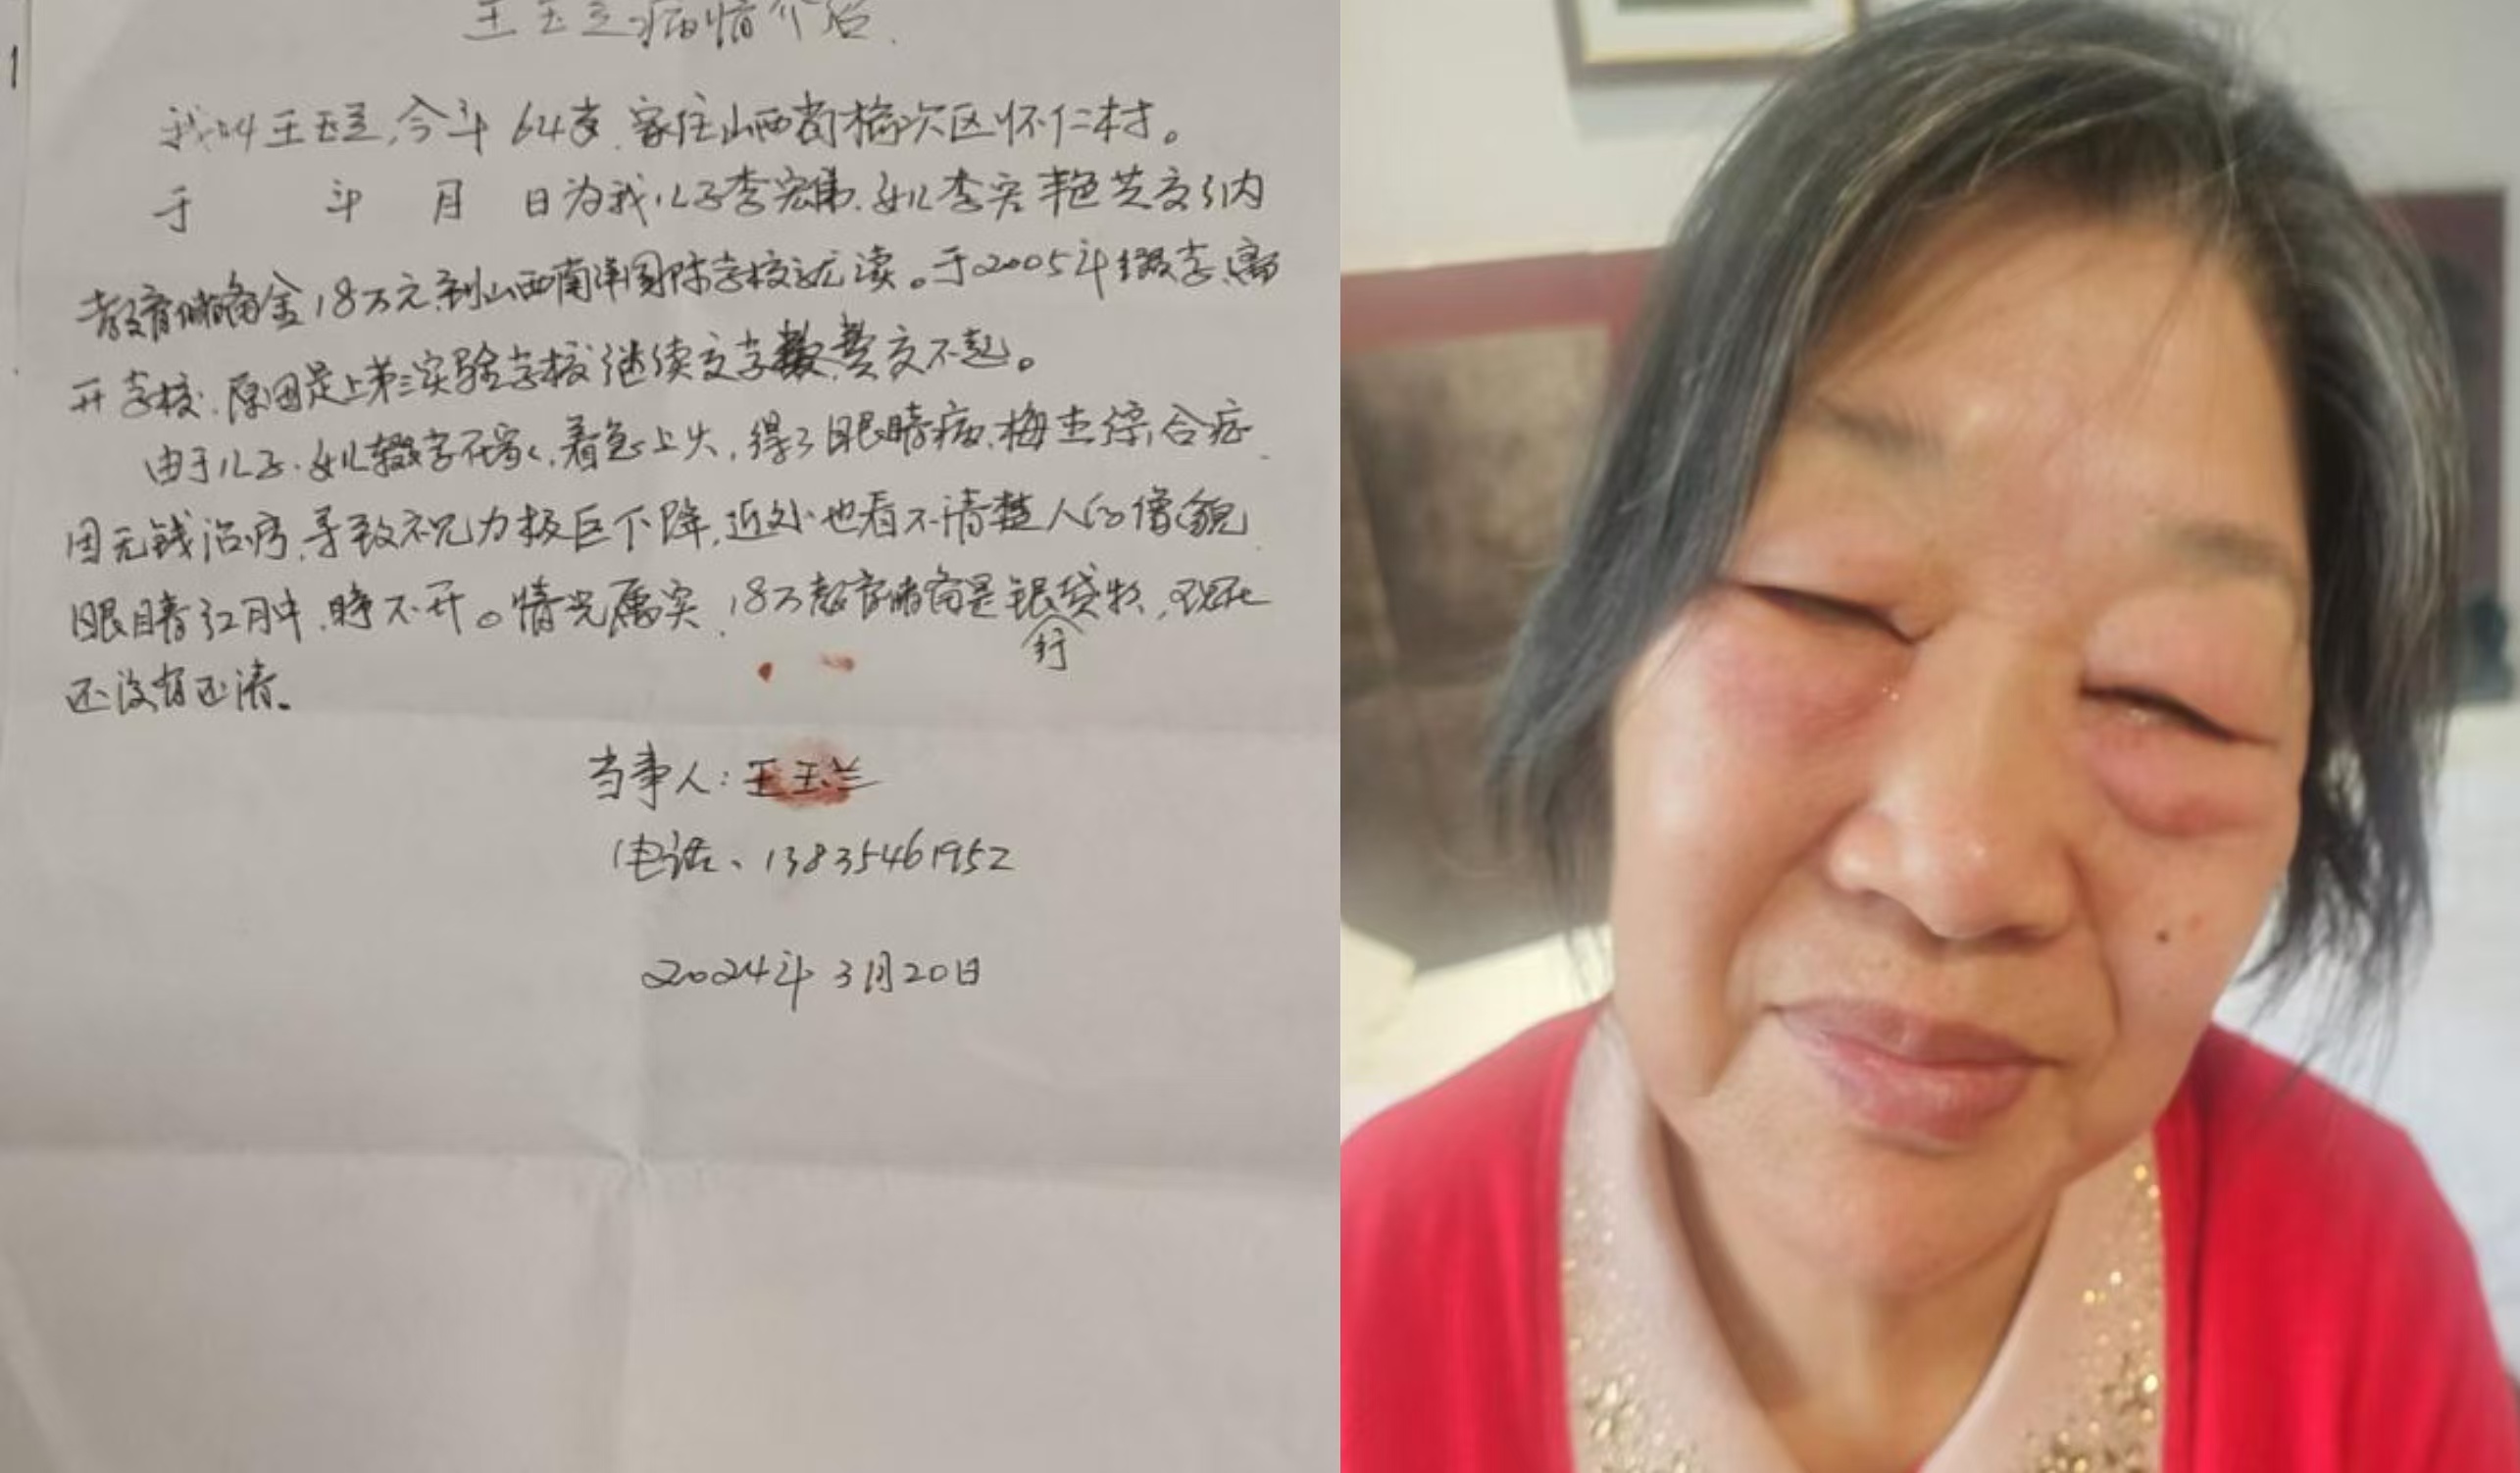 王玉兰病情介绍.
1
我叫王玉兰,今年64岁,家住山西省榆次区怀仁村。
于 年 月 日为我儿子李宏伟,女儿李宏艳共交了内
教育储备金18万元到山西南洋国际学校就读。于2005年辍学离
开学校.原因是上第三实验学校继续交学费交不起。
由于儿子.女儿辍学在家,着急上火,得了眼睛病,梅杰综合症.
因无钱治疗,导致视力极巨下降,近处也看不清楚人的像貌.
眼睛红肿,睁不开。情况属实,18万教育储备是银行贷款,现在
还没有还清。
当事人:王玉兰
电话、13835461952
2024年3月20日